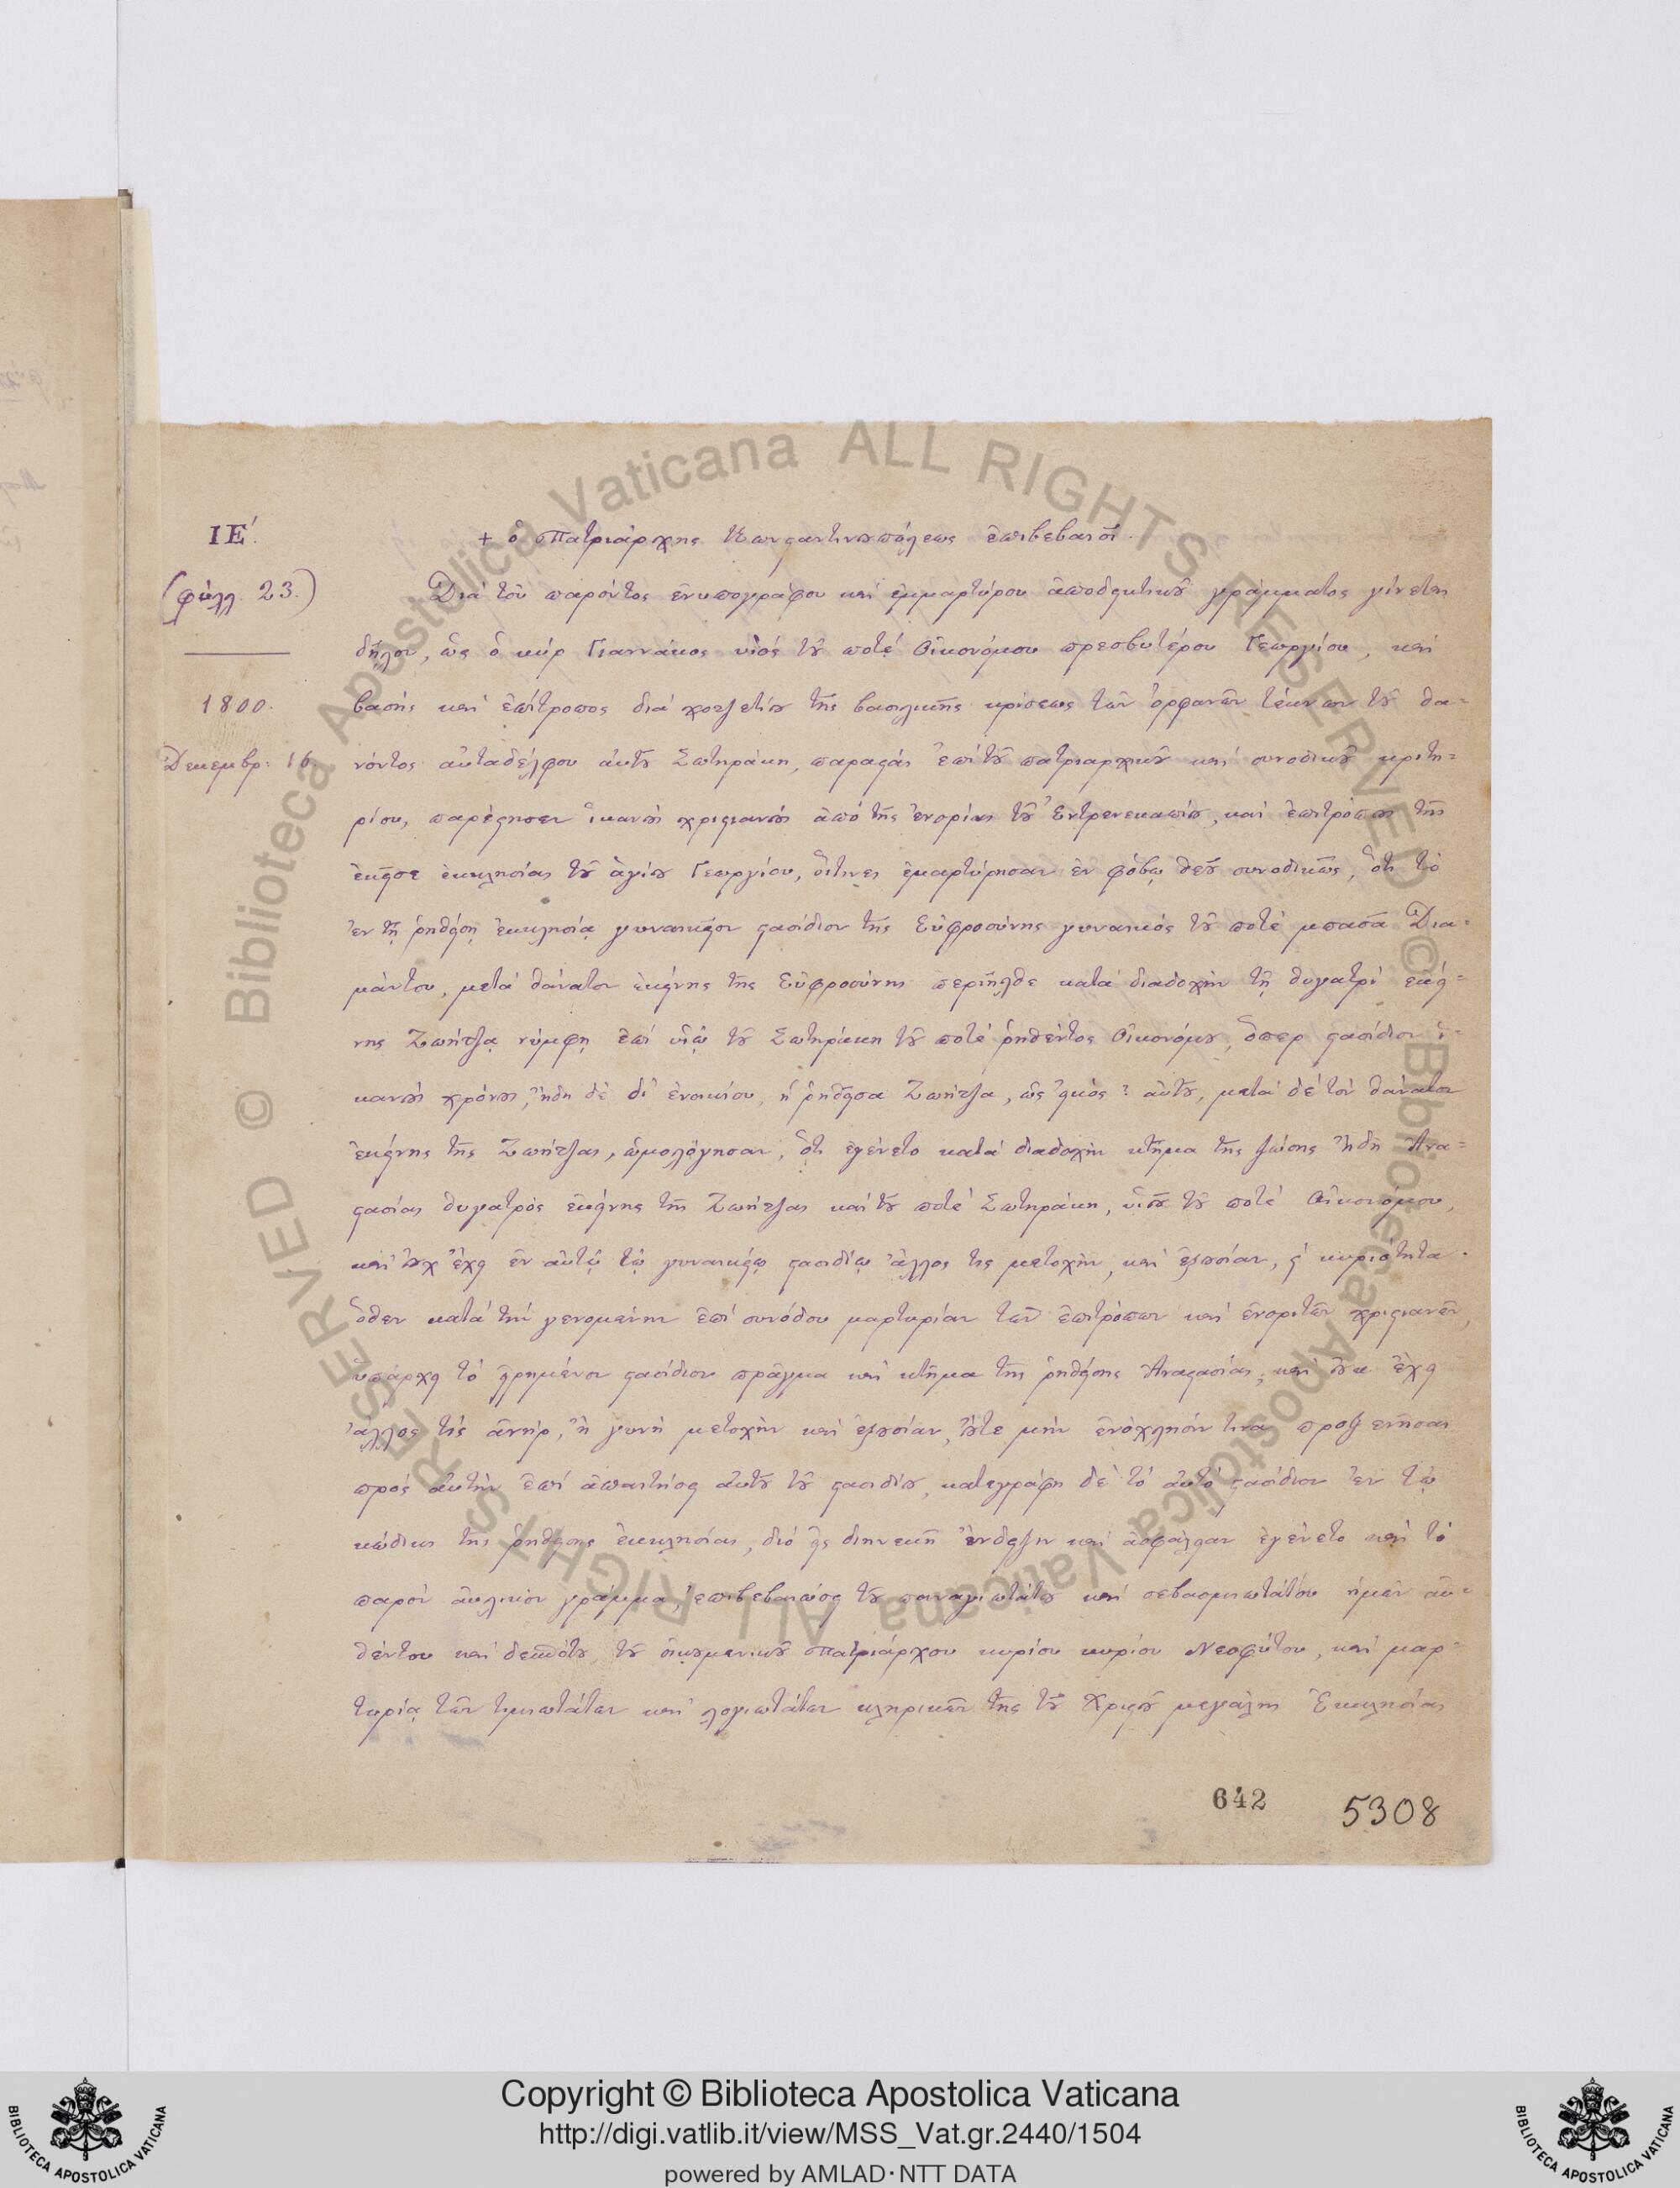 ΙΕ΄.
+ ὁ Πατριάρχης Κωνσταντινουπόλεως ἐπιβεβαιοῖ.
(φύλλ. 23.)
Διά τοῦ παρόντος ἐνυπογράφου καί ἐμμαρτύρου ἀποδεικτικοῦ γράμματος γίνεται
δῆλον, ὡς ὁ κύρ Γιαννάκος υἱός τοῦ ποτέ Οἰκονόμου πρεσβυτέρου Γεωργίου, καί
1800.
βασής καί ἐπίτροπος διά χοτζετίου τῆς βασιλικῆς κρίσεως τῶν ὀρφανῶν τέκνων τοῦ θα=
Δεκεμβρ: 16.
νόντος αὐταδέλφου αὐτοῦ Σωτηράκη, παραστάς ἐπί τοῦ πατριαρχικοῦ καί συνοδικοῦ κριτη=
ρίου, παρέστησεν ἱκανούς χριστιανούς ἀπό τῆς ἐνορίας τοῦ Ἐντρενεκαπίου, καί ἐπιτρόπους τῆς
ἐκεῖσε ἐκκλησίας τοῦ ἁγίου Γεωργίου, οἵτινες ἐμαρτύρησαν ἐν φόβῳ θεοῦ συνοδικῶς, ὅτι τό
ἐν τῇ ῥηθείσῃ ἐκκλησίᾳ γυναικεῖον στασίδιον τῆς Εὐφροσύνης γυναικός τοῦ ποτέ μπασᾶ Δια=
μάντου, μετά θάνατον ἐκείνης τῆς Εὐφροσύνης περιῆλθε κατά διαδοχήν τῇ θυγατρί ἐκεί=
νης Ζωήτζᾳ νύμφῃ ἐπί υἱῷ τοῦ Σωτηράκη τοῦ ποτέ ῥηθέντος Οἰκονόμου, ὅπερ στασίδιον ἱ=
κανούς χρόνους, ἤδη δέ δι' ἐνοικίου, ἡ ῥηθεῖσα Ζωήτζα, ὡς εἰκός? αὐτοῦ, μετά δέ τόν θάνατον
ἐκείνης τῆς Ζωήτζας, ὡμολόγησαν, ὅτι ἐγένετο κατά διαδοχήν κτῆμα τῆς ζώσης ἤδη Ἀνα=
στασίας θυγατρός ἐκείνης τῆς Ζωήτζας καί τοῦ ποτέ Σωτηράκη, υἱοῦ τοῦ ποτέ Οἰκονόμου,
καί οὐχ ἔχει ἐν αὐτῷ τῷ γυναικείῳ στασιδίῳ ἄλλος τις μετοχήν, καί ἐξουσίαν, ἤ κυριότητα.
ὅθεν κατά τήν γενομένην ἐπί συνόδου μαρτυρίαν τῶν ἐπιτρόπων καί ἐνοριτῶν χριστιανῶν,
ὑπάρχει τό εἰρημένον στασίδιον πρᾶγμα καί κτῆμα τῆς ῥηθείσης Ἀναστασίας, καί οὐκ ἔχει
ἄλλος τίς ἀνήρ, ἤ γυνή μετοχήν καί ἐξουσίαν, οὔτε μήν ἐνόχλησίν τινα προξενῆσαι
πρός αὐτήν ἐπί ἀπαιτήσει αὐτοῦ τοῦ στασιδίου, κατεγράφη δέ τό αὐτό στασίδιον ἐν τῷ
κώδικι τῆς ῥηθείσης ἐκκλησίας, διό εἰς διηνεκῆ ἔνδειξιν καί ἀσφάλειαν ἐγένετο καί τό
παρόν γράμμα ἐπιβεβαιώσει τοῦ παναγιωτάτου καί σεβασμιωτάτου ἡμῶν αὐ=
θέντου καί δεσπότου, τοῦ οἰκουμενικοῦ Πατριάρχου κυρίου κυρίου Νεοφύτου, καί μαρ=
τυρίᾳ τῶν τιμιωτάτων καί λογιωτάτων κληρικῶν τῆς τοῦ Χριστοῦ μεγάλης Ἐκκλησίας
642 5308
© Biblioteca Apostolica Vaticana ALL RIGHTS RESERVED
© Biblioteca Apostolica Vaticana ALL RIGHTS RESERVED
BIBLIOTECA APOSTOLICA VATICANA
Copyright © Biblioteca Apostolica Vaticana
http://digi.vatlib.it/view/MSS_Vat.gr.2440/1504
powered by AMLAD·NTT DATA
BIBLIOTECA APOSTOLICA VATICANA